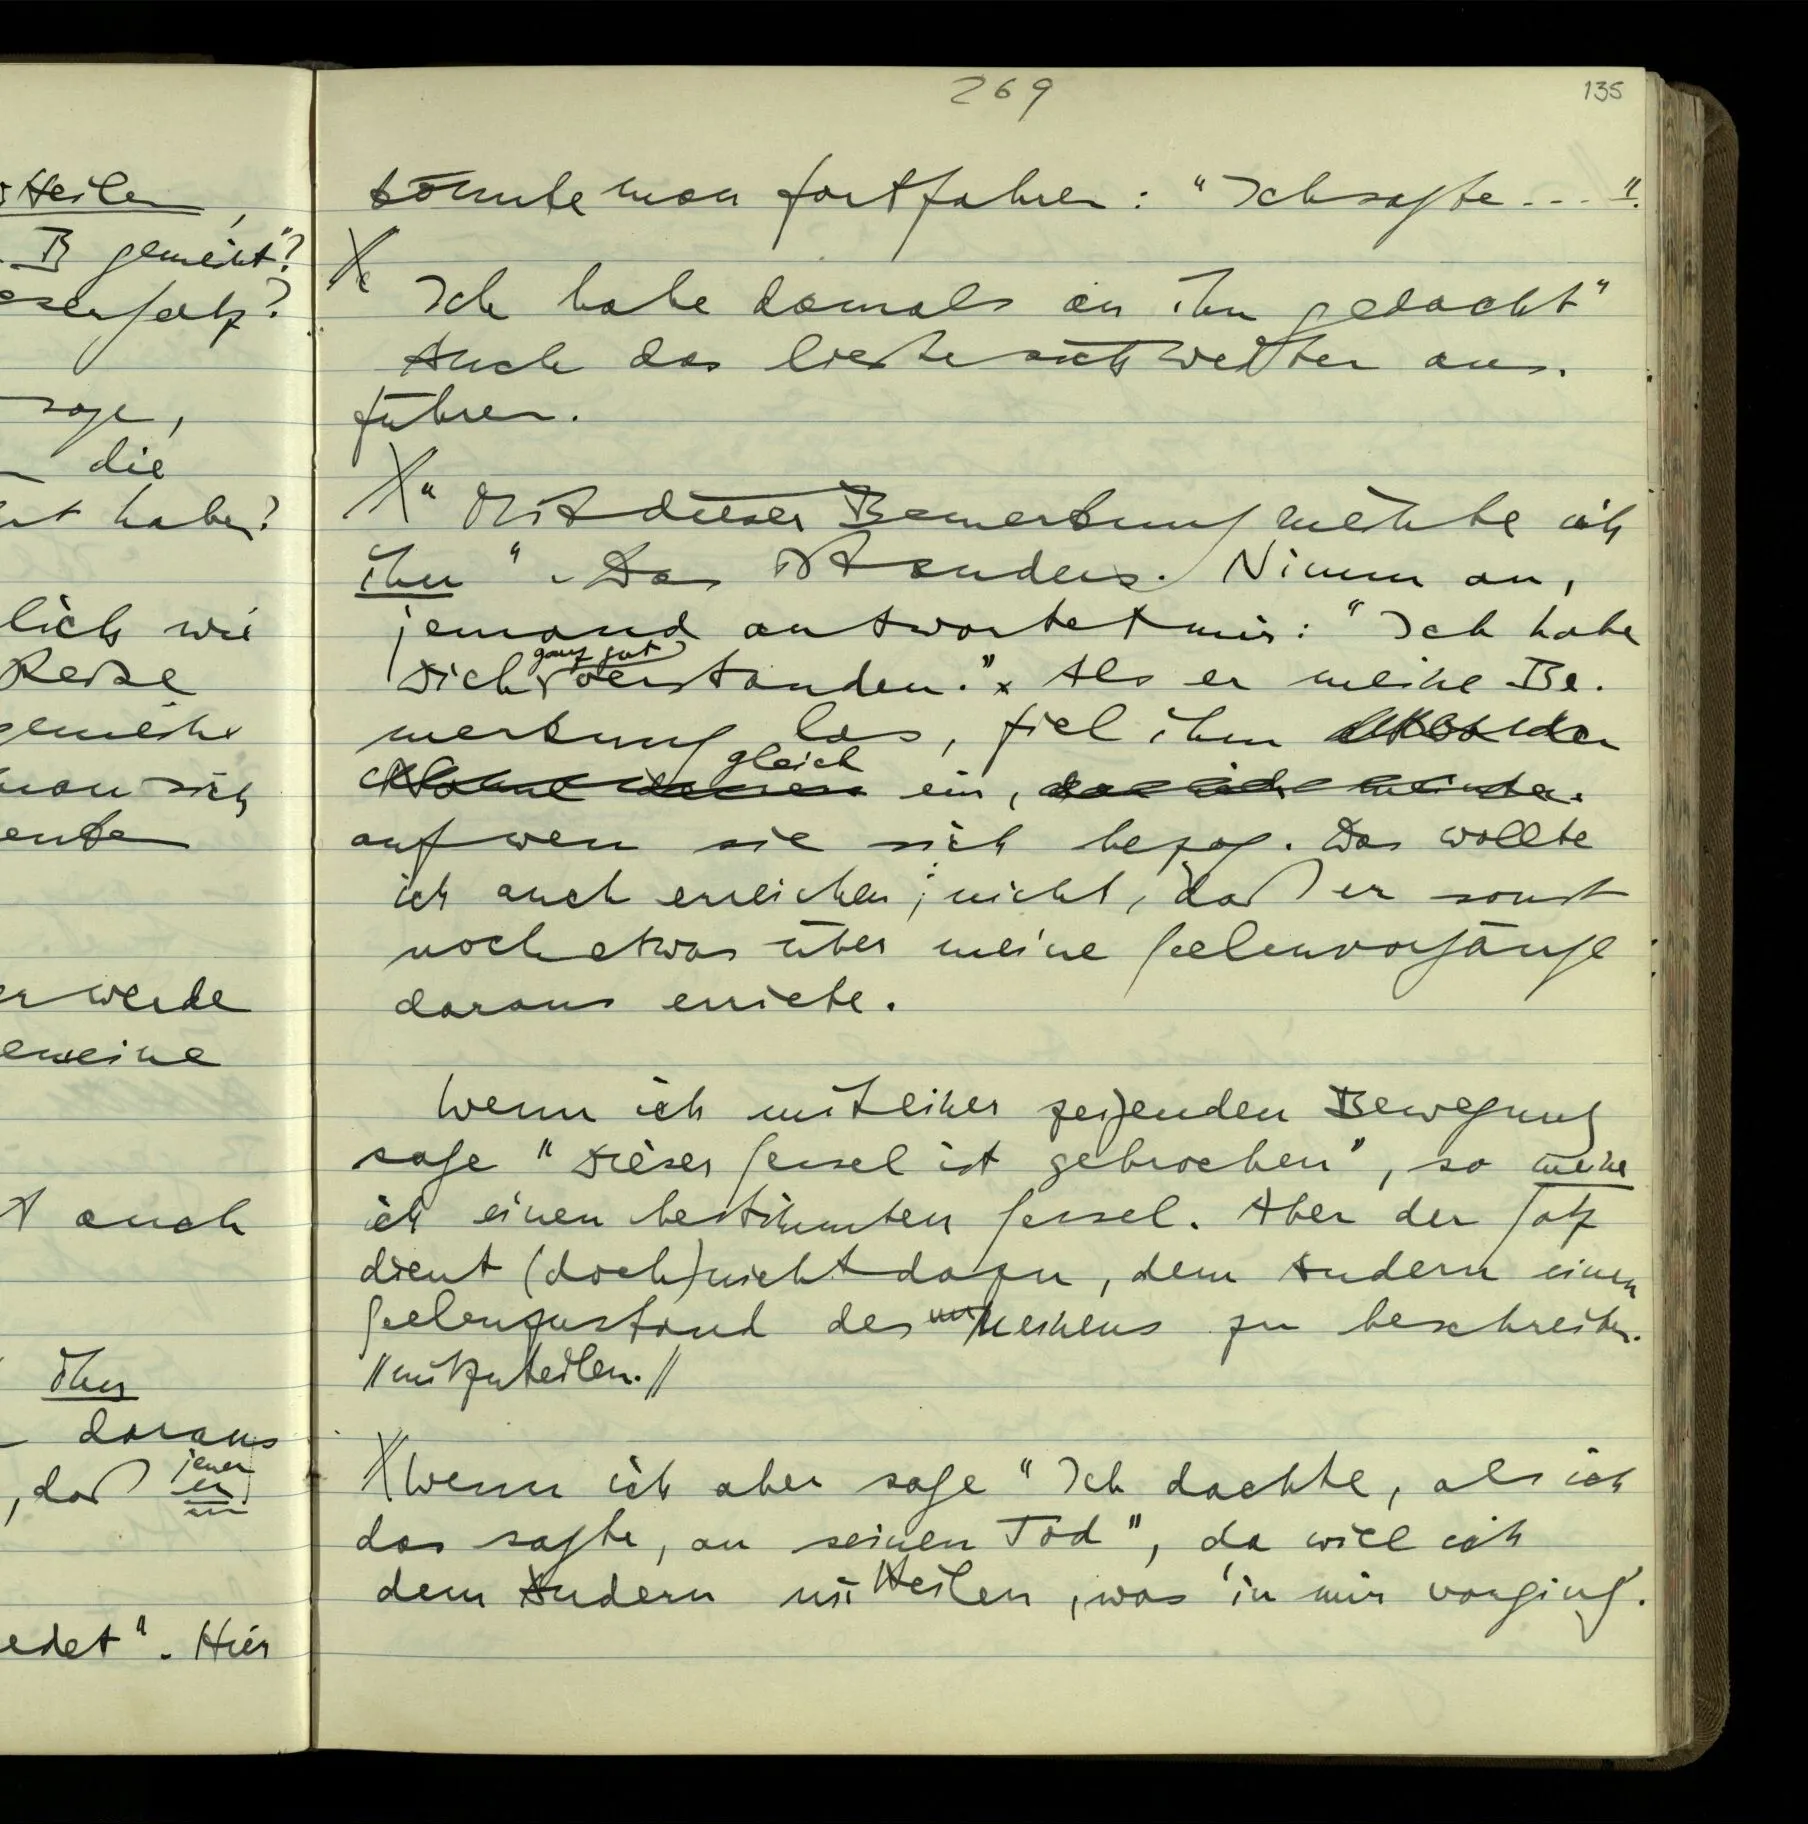 269
135
könnte man fortfahren: "Ich sagte ... ".
Ich habe damals an ihn gedacht"
Auch das ließe sich weiter aus-
führen.
"Mit dieser Bemerkung meinte ich
ihn". – Das ist anders. Nimm an,
jemand antwortet mir: "Ich habe
ganz gut
Dich verstanden." Als er meine Be-
merkung las, fiel ihm
gleich
ein,
auf wen sie sich bezog. Das wollte
ich auch erreichen; nicht, daß er sonst
noch etwas über meine Seelenvorgänge
daraus erriete.
Wenn ich mit einer zeigenden Bewegung
sage "Dieser Sessel ist gebrochen", so meine
ich einen bestimmten Sessel. Aber der Satz
dient (doch) nicht dazu, dem Andern einen
Seelenzustand des Meinens zu beschreiben.
//mitzuteilen.//
Wenn ich aber sage "Ich dachte, als ich
das sagte, an seinen Tod", da will ich
dem Andern mitteilen, was 'in mir vorging'.
teilen,
B gemeint"?
sage,
die
haben?
lich wie
Reise
gemeine
man sich
werde
meine
auch
ihn
daraus
jener
, daß er
edet". Hier